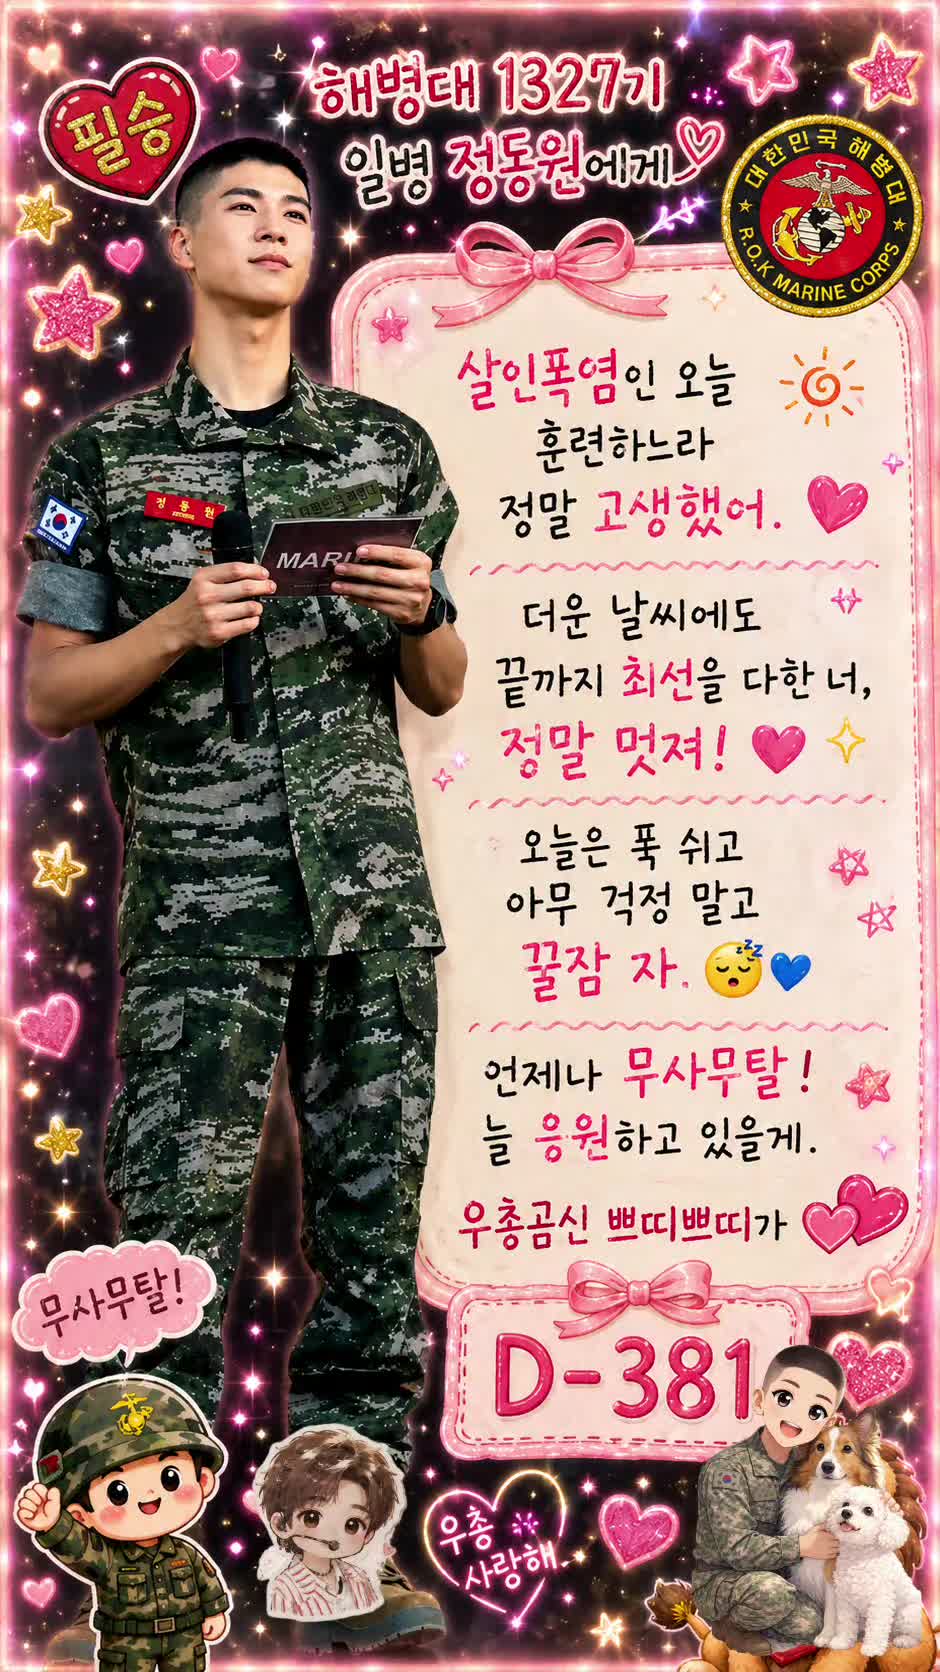 필승
해병대 1327기
일병 정동원에게
대한민국 해병대
R.O.K MARINE CORPS
살인폭염인 오늘
훈련하느라
정말 고생했어.
정동원
대한민국 해병대
MARI
더운 날씨에도
끝까지 최선을 다한 너,
정말 멋져!
오늘은 푹 쉬고
아무 걱정 말고
꿀잠 자.
언제나 무사무탈!
늘 응원하고 있을게.
우총곰신 쁘띠쁘띠가
무사무탈!
D-381
우총
사랑해.